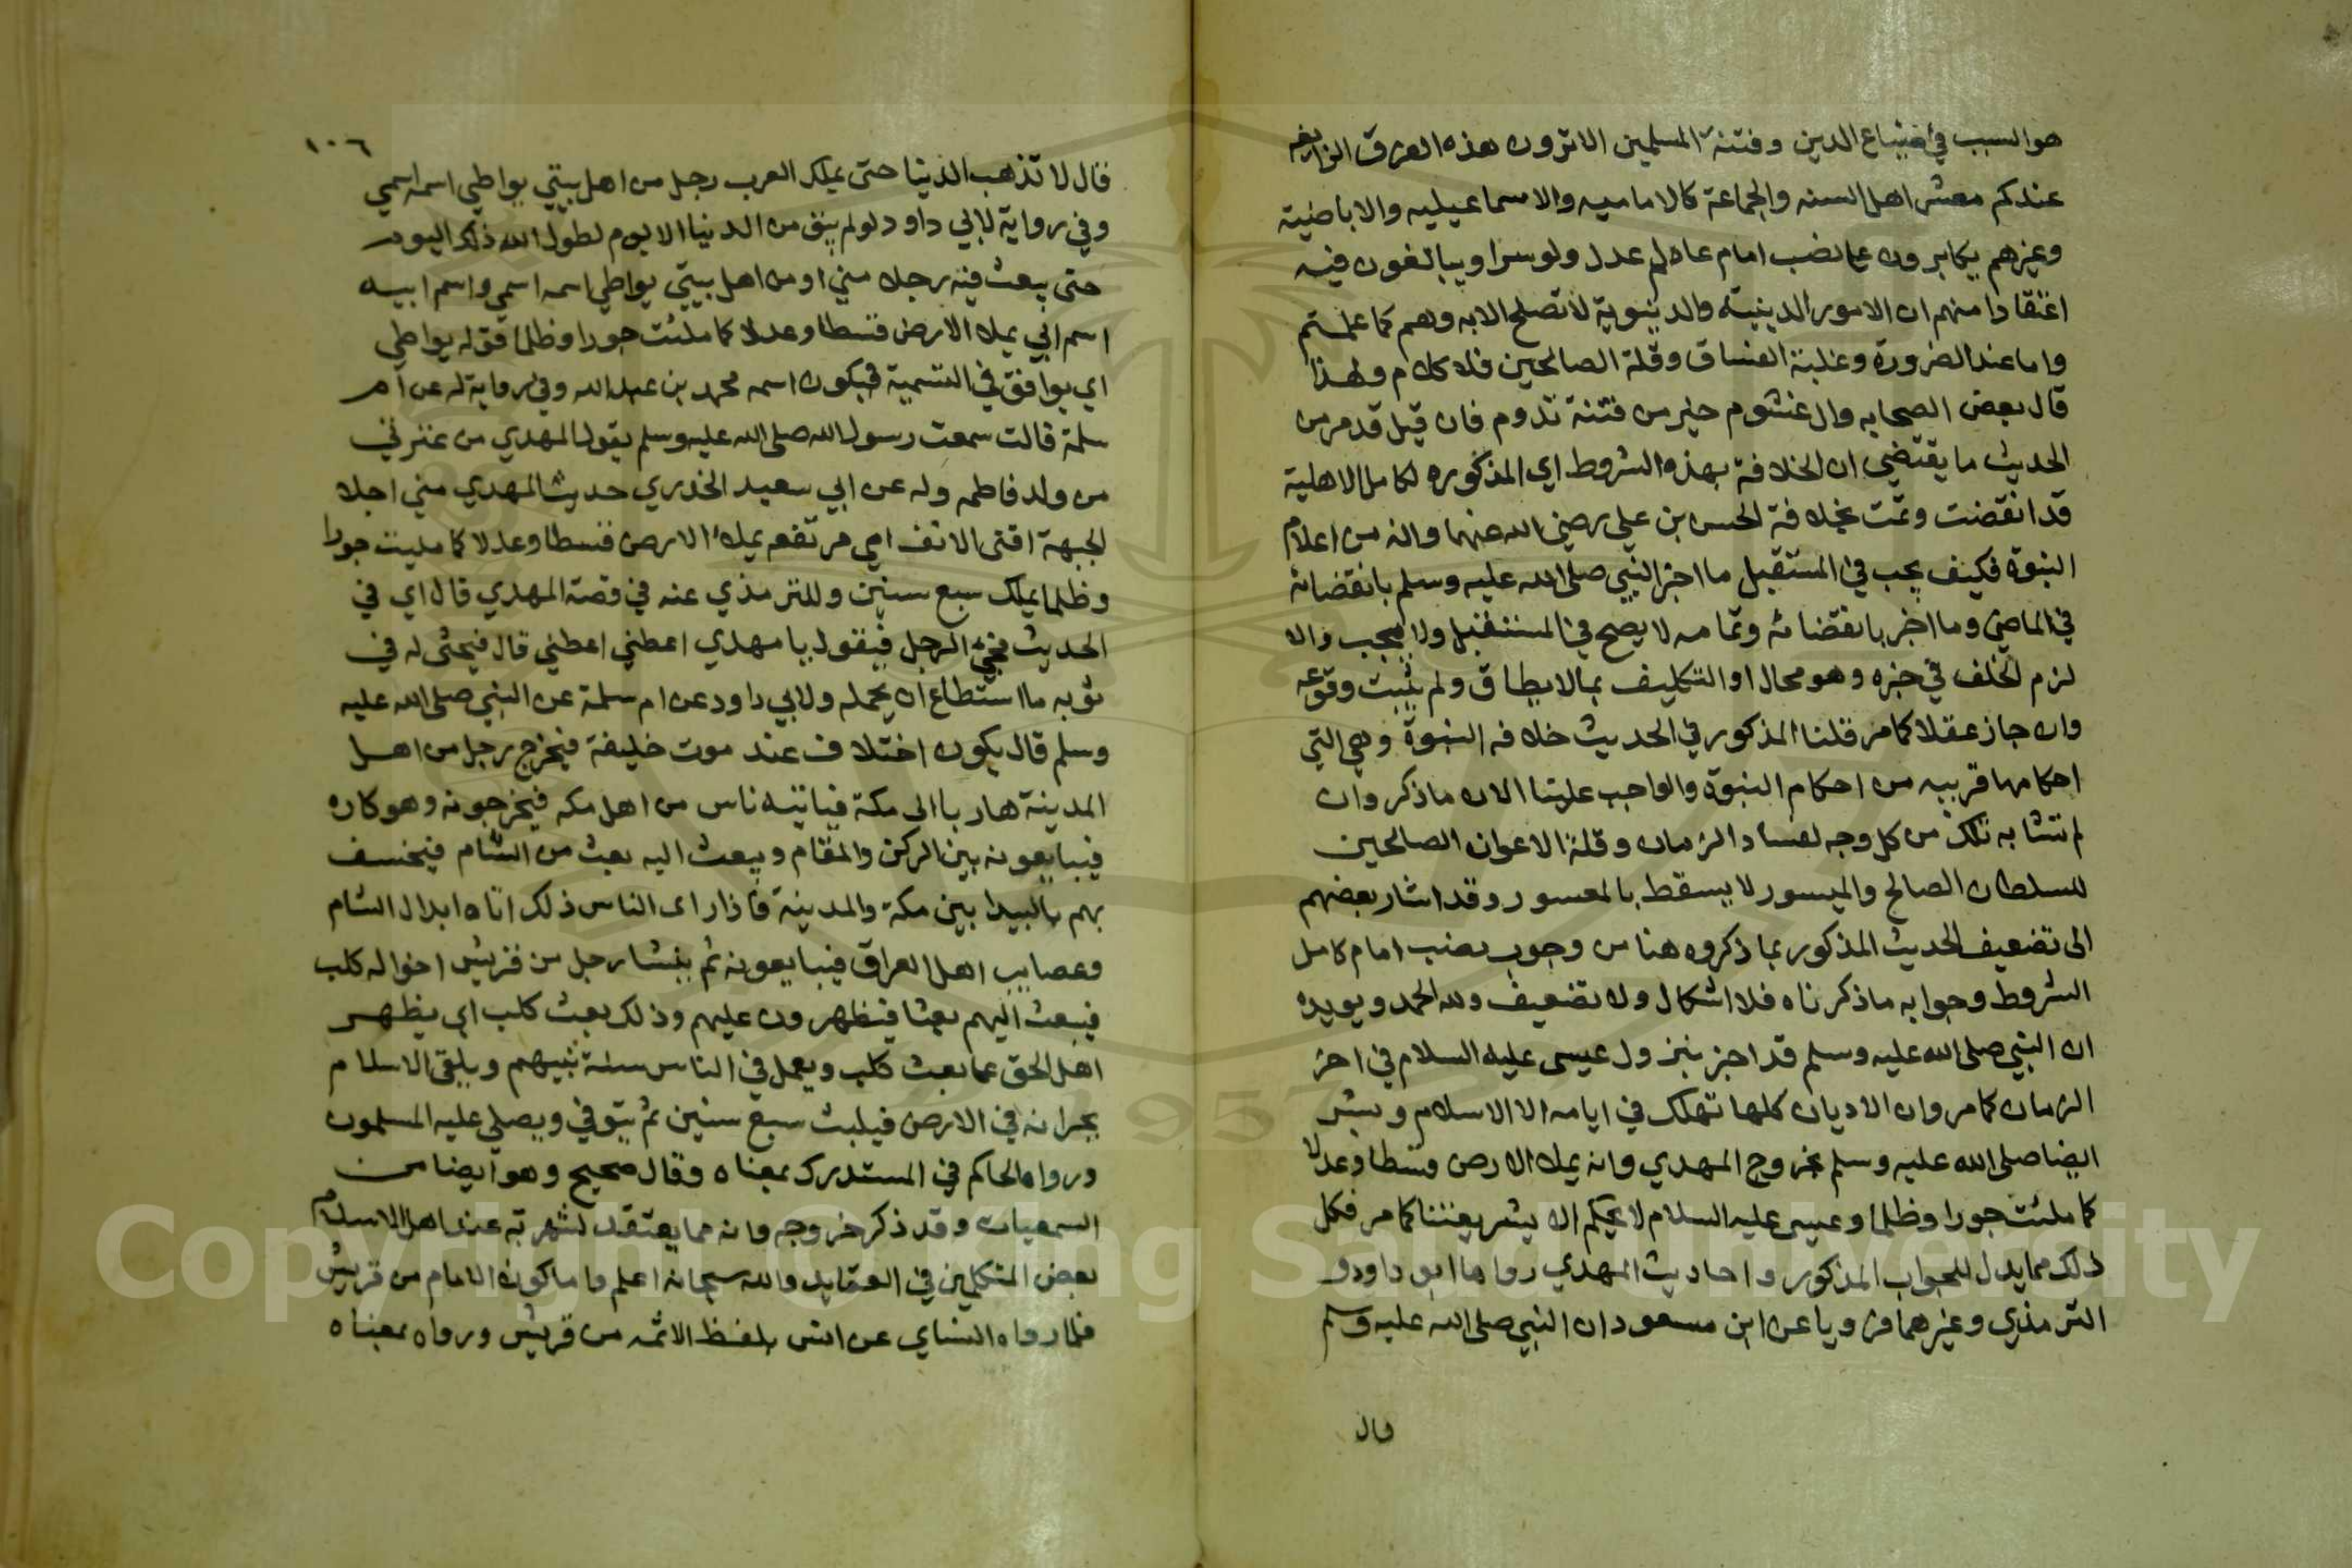 هو السبب في ضياع الدين وفتنة المسلمين الا ترون هذه الفرق الزايغه
عندكم معشر اهل السنه والجماعة كالاماميه والاسماعيليه والاباضية
وغيرهم يكابرون على نصب امام عادل عدل ولو سرا ويبالغون فيه
اعتقادا منهم ان الامور الدينية والدينوية لا تصلح الا به وهم كما علمتم
واما عند الضرورة وغلبة الفساق وقلة الصالحين فلا كلام ولهذا
قال بعض الصحابه وال غشوم خير من فتنة تدوم فان قيل قد مر من
الحديث ما يقتضي ان الخلافة بهذه الشروط اي المذكوره لكامل الاهلية
قد انقضت وتمت بخلافة الحسن بن علي رضي الله عنهما وانه من اعلام
النبوة فكيف يجب في المستقبل ما اخبر النبي صلى الله عليه وسلم بانقضائه
في الماضي وما اخبر بانقضائه وتمامه لا يصح في المستقبل ولا يجب والا
لزم الخلف في خبره وهو محال او التكليف بما لا يطاق ولم يثبت وقوعه
وان جاز عقلا كما مر قلنا المذكور في الحديث خلافه النبوة وهي التي
احكامها قريبه من احكام النبوة والواجب علينا الان ما ذكر وان
لم تتشابه تلك من كل وجه لفساد الزمان وقلة الاعوان الصالحين
للسلطان الصالح والميسور لا يسقط بالمعسور وقد اشار بعضهم
الى تضعيف الحديث المذكور بما ذكروه هنا من وجوب نصب امام كامل
الشروط وجوابه ما ذكرناه فلا اشكال ولا تضعيف ولله الحمد ويويده
ان النبي صلى الله عليه وسلم قد اخبر بنزول عيسى عليه السلام في اخر
الزمان كما مر وان الاديان كلها تهلك في ايامه الا الاسلام وبشر
ايضا صلى الله عليه وسلم بخروج المهدي وانه يملا الارض قسطا وعدلا
كما ملئت جورا وظلما وعيسى عليه السلام لا يحكم الا بشريعتنا كما مر فكل
ذلك مما يدل للجواب المذكور واحاديث المهدي رواها ابو داود و
الترمذي وغيرهما فرويا عن ابن مسعود ان النبي صلى الله عليه وسلم
قال
١٠٦
قال لا تذهب الدنيا حتى يملك العرب رجل من اهل بيتي يواطي اسمه اسمي
وفي رواية لابي داود لو لم يبق من الدنيا الا يوم لطول الله ذلك اليوم
حتى يبعث فيه رجلا مني او من اهل بيتي يواطي اسمه اسمي واسم ابيه
اسم ابي يملا الارض قسطا وعدلا كما ملئت جورا وظلما قوله يواطي
اي يوافق في التسمية فيكون اسمه محمد بن عبد الله وفي رواية له عن ام
سلمة قالت سمعت رسول الله صلى الله عليه وسلم يقول المهدي من عترتي
من ولد فاطمه وله عن ابي سعيد الخدري حديث المهدي مني اجلا
الجبهة اقنى الانف اي مرتفعه يملا الارض قسطا وعدلا كما مليت جورا
وظلما يملك سبع سنين وللترمذي عنه في قصة المهدي قال اي في
الحديث فيجئ الرجل فيقول يا مهدي اعطني اعطني قال فيحثى له في
ثوبه ما استطاع ان يحمله ولابي داود عن ام سلمة عن النبي صلى الله عليه
وسلم قال يكون اختلاف عند موت خليفة فيخرج رجل من اهل
المدينة هاربا الى مكة فياتيه ناس من اهل مكه فيخرجونه وهو كاره
فيبايعونه بين الركن والمقام ويبعث اليه بعث من الشام فيخسف
بهم بالبيدا بين مكة والمدينة فاذا راى الناس ذلك اتاه ابدال الشام
وعصايب اهل العراق فيبايعونه ثم ينشا رجل من قريش اخواله كلب
فيبعث اليهم بعثا فيظهرون عليهم وذلك بعث كلب اي يظهر
اهل الحق على بعث كلب ويعمل في الناس سنة نبيهم ويلقى الاسلام
بجرانه في الارض فيلبث سبع سنين ثم يتوفي ويصلي عليه المسلمون
ورواه الحاكم في المستدرك بمعناه وقال صحيح وهو ايضا من
السمعيات وقد ذكر خروجه وانه مما يعتقد لشهرته عند اهل الاسلام
بعض المتكلمين في العقايد والله سبحانه اعلم واما كون الامام من قريش
فلما رواه النساي عن انس بلفظ الائمه من قريش ورواه بمعناه
Copyright © King Saud University
1957